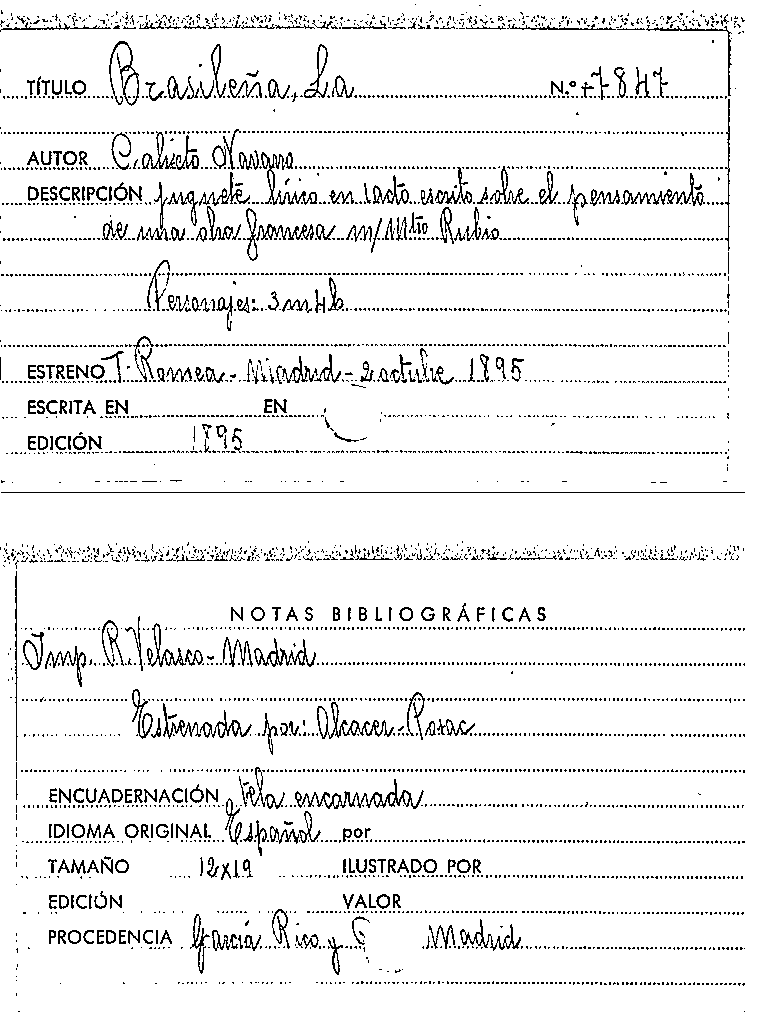 TÍTULO Brasileña, La N.º 7847
AUTOR Calixto Navarro
DESCRIPCIÓN juguete lírico en 1 acto escrito sobre el pensamiento
de una obra francesa m/ Mtro Rubio
Personajes: 3 m 4 h
ESTRENO T. Romea - Madrid - 2 octubre 1895
ESCRITA EN EN
EDICIÓN 1895
NOTAS BIBLIOGRÁFICAS
Imp. R. Velasco - Madrid
Estrenada por: Alcacer - Rosac
ENCUADERNACIÓN tela encarnada
IDIOMA ORIGINAL Español por
TAMAÑO 12x19 ILUSTRADO POR
EDICIÓN VALOR
PROCEDENCIA García Rico y C Madrid